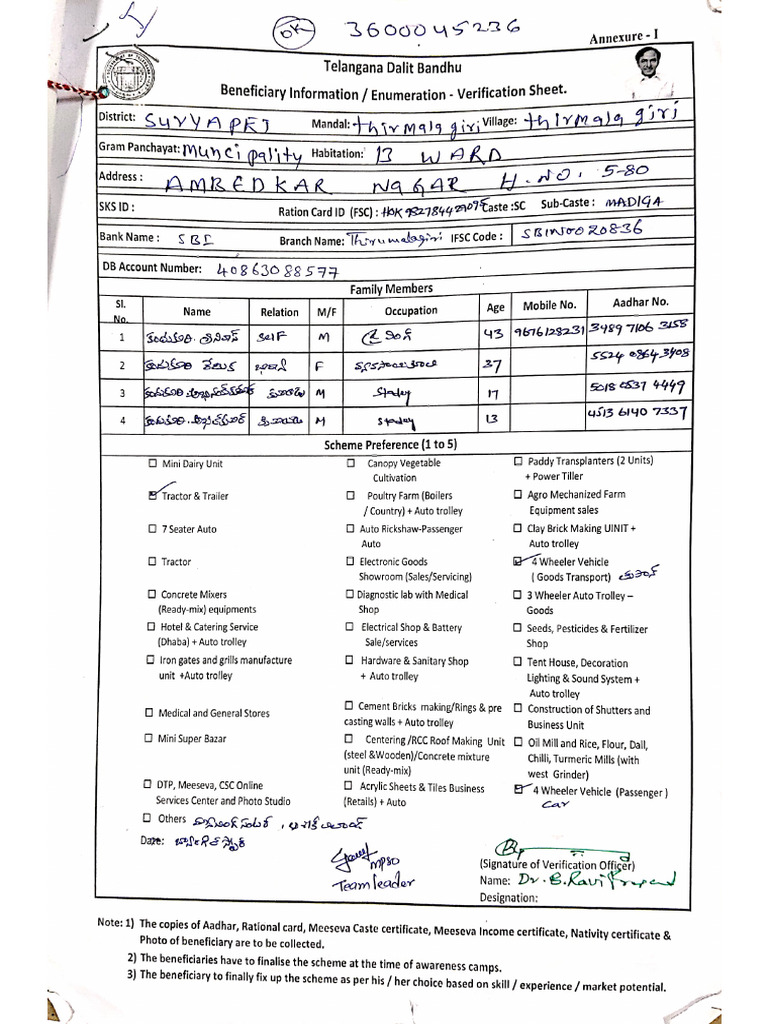 OK 3600045236
Annexure - I
Telangana Dalit Bandhu
Beneficiary Information / Enumeration - Verification Sheet.
District: SURYAPET Mandal: thirmalagiri Village: thirmalagiri
Gram Panchayat: muncipality Habitation: 13 WARD
Address : AMBEDKAR NAGAR H.NO. 5-80
SKS ID : Ration Card ID (FSC) : Caste :SC Sub-Caste : MADIGA
Bank Name : SBI Branch Name: Thirumalagiri IFSC Code : SBIN0020836
DB Account Number: 40863088577
Family Members
Sl. No. Name Relation M/F Occupation Age Mobile No. Aadhar No.
1 కందుకూరి. శ్రీనివాస్ self M 43 9676128231 3489 7106 3158
2 కందుకూరి F 37 5524 0864 3408
3 కందుకూరి కుమారుడు M Stady 17 5018 0537 4449
4 కందుకూరి కుమారుడు M Stady 13 4513 6140 7337
Scheme Preference (1 to 5)
Mini Dairy Unit
Canopy Vegetable Cultivation
Paddy Transplanters (2 Units) + Power Tiller
Tractor & Trailer
Poultry Farm (Boilers / Country) + Auto trolley
Agro Mechanized Farm Equipment sales
7 Seater Auto
Auto Rickshaw-Passenger Auto
Clay Brick Making UINIT + Auto trolley
Tractor
Electronic Goods Showroom (Sales/Servicing)
4 Wheeler Vehicle ( Goods Transport)
Concrete Mixers (Ready-mix) equipments
Diagnostic lab with Medical Shop
3 Wheeler Auto Trolley – Goods
Hotel & Catering Service (Dhaba) + Auto trolley
Electrical Shop & Battery Sale/services
Seeds, Pesticides & Fertilizer Shop
Iron gates and grills manufacture unit +Auto trolley
Hardware & Sanitary Shop + Auto trolley
Tent House, Decoration Lighting & Sound System + Auto trolley
Medical and General Stores
Cement Bricks making/Rings & pre casting walls + Auto trolley
Construction of Shutters and Business Unit
Mini Super Bazar
Centering /RCC Roof Making Unit (steel &Wooden)/Concrete mixture unit (Ready-mix)
Oil Mill and Rice, Flour, Dall, Chilli, Turmeric Mills (with west Grinder)
DTP, Meeseva, CSC Online Services Center and Photo Studio
Acrylic Sheets & Tiles Business (Retails) + Auto
4 Wheeler Vehicle (Passenger )
car
Others
Date:
MPSO
Teamleader
(Signature of Verification Officer)
Name: Dr. B. Ravi Prasad
Designation:
Note: 1) The copies of Aadhar, Rational card, Meeseva Caste certificate, Meeseva Income certificate, Nativity certificate &
Photo of beneficiary are to be collected.
2) The beneficiaries have to finalise the scheme at the time of awareness camps.
3) The beneficiary to finally fix up the scheme as per his / her choice based on skill / experience / market potential.